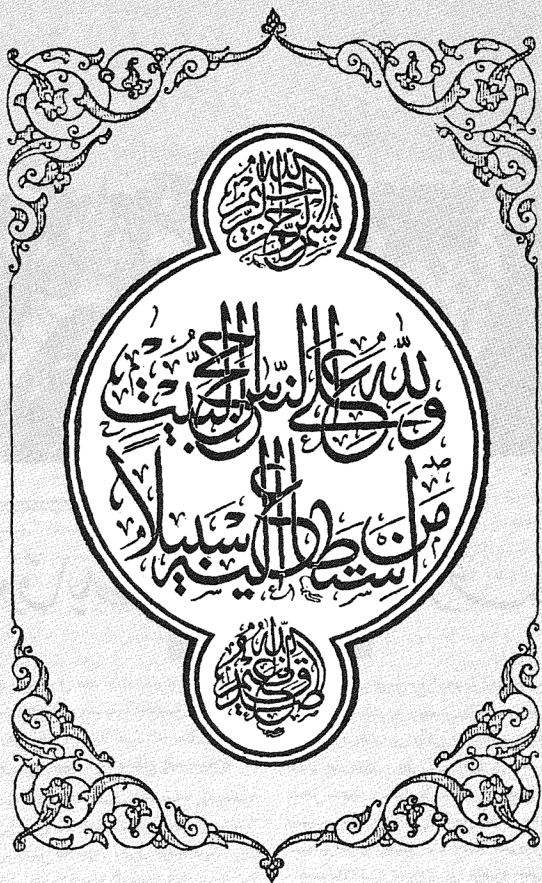 بسم الله الرحمن الرحيم
ولله على الناس حج البيت
من استطاع إليه سبيلاً
صدق الله العظيم